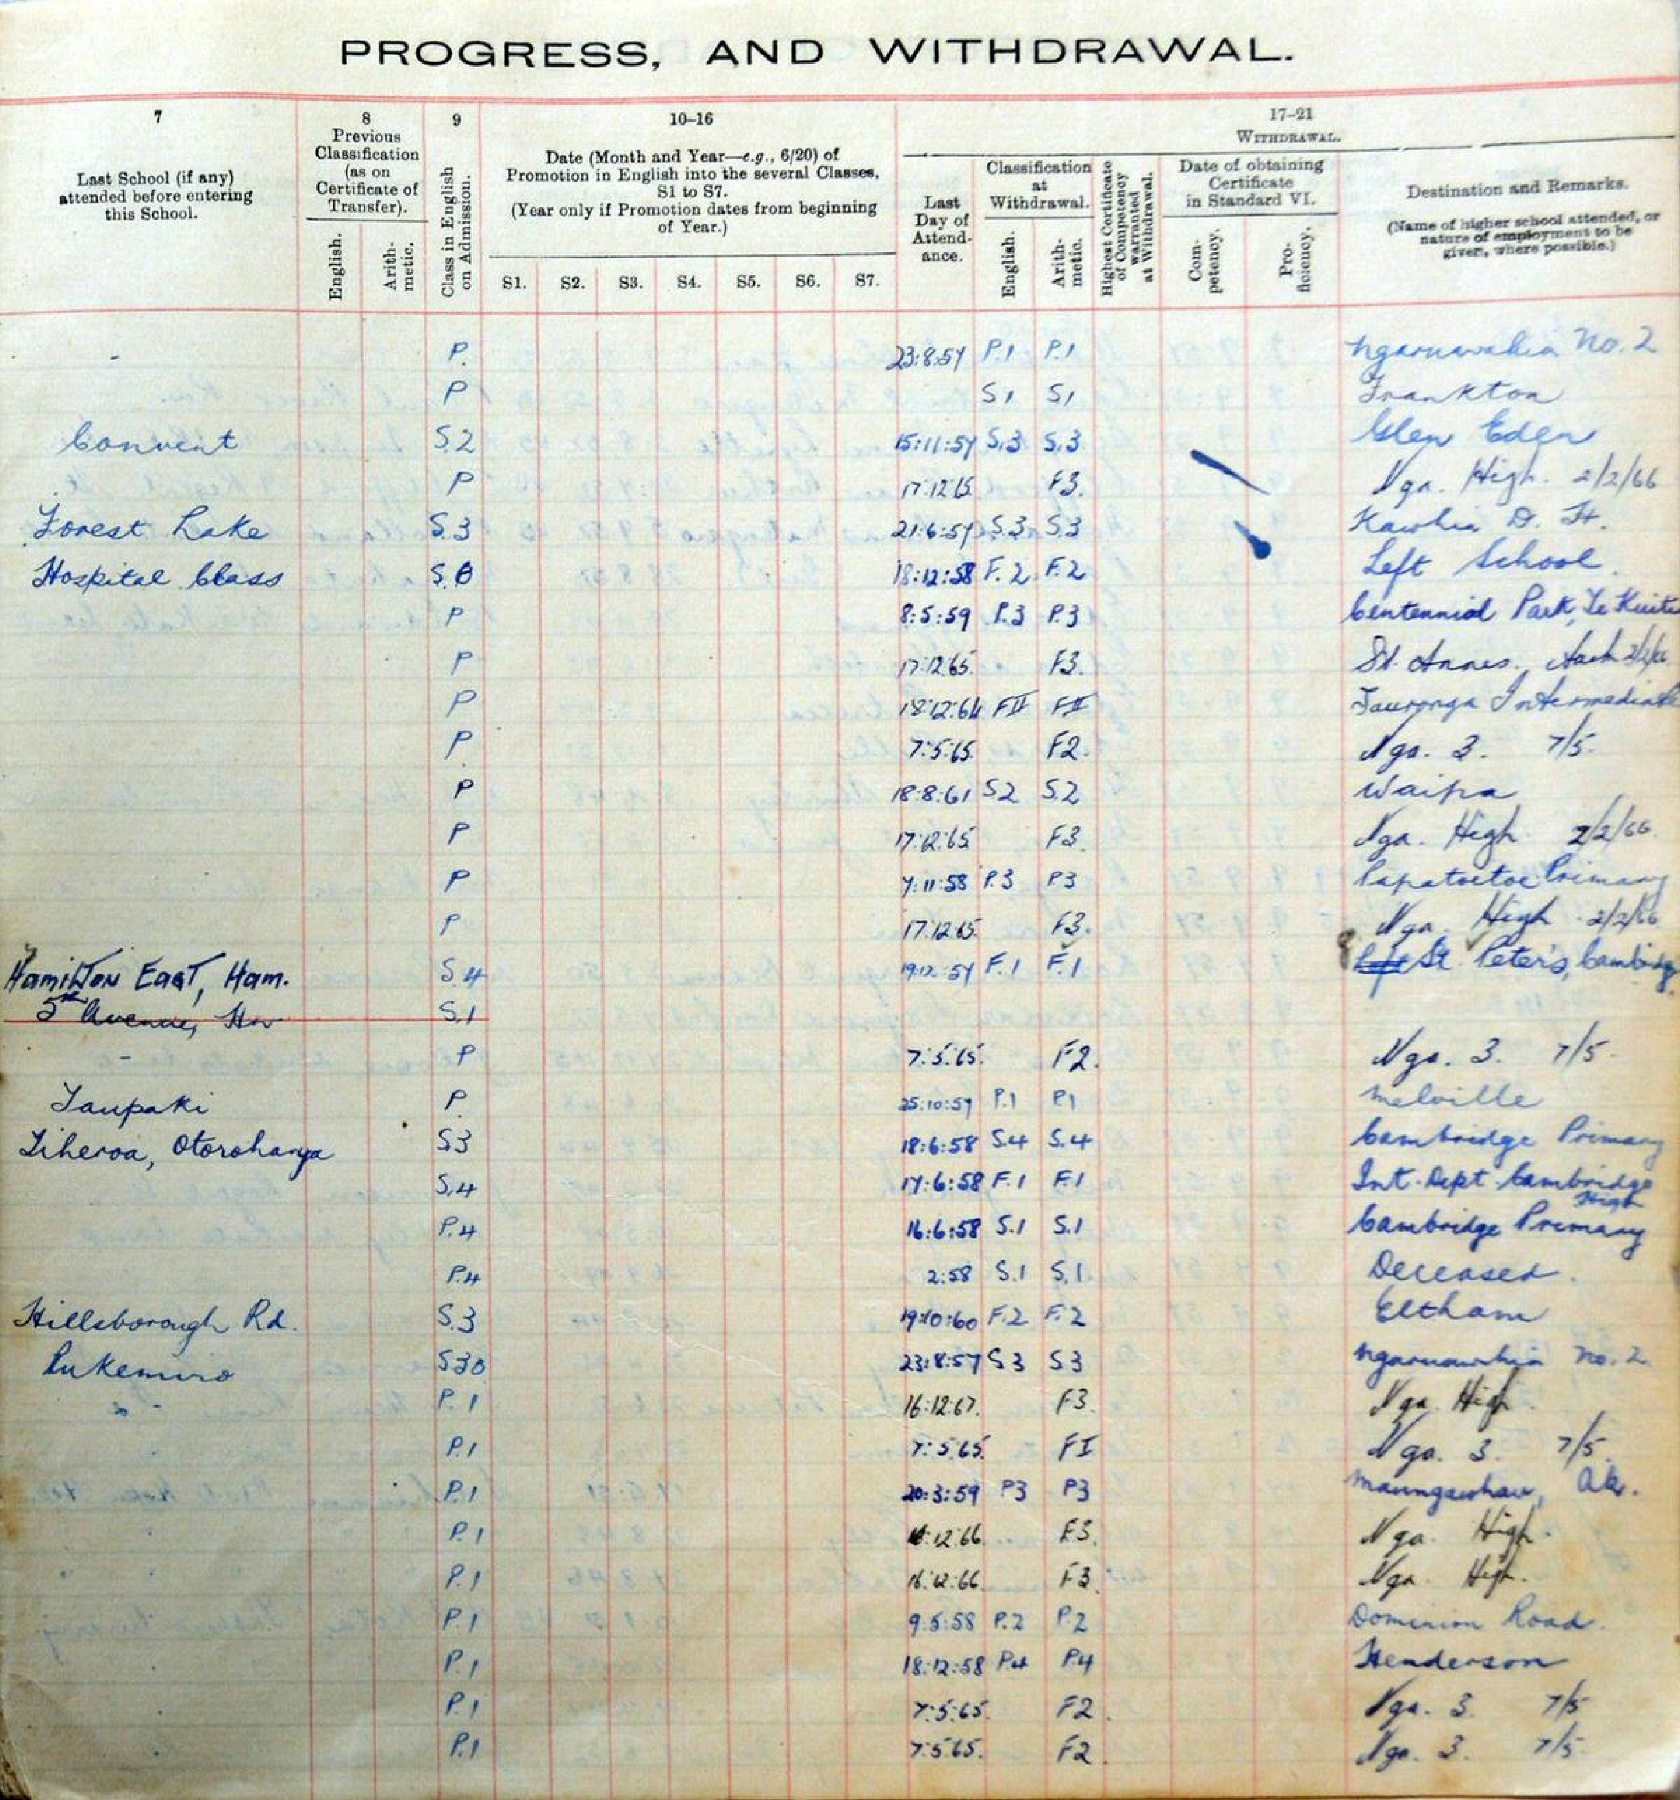 PROGRESS, AND WITHDRAWAL.
7 8 9 10-16 17-21
Last School (if any) attended before entering this School.
Previous Classification (as on Certificate of Transfer).
English. Arithmetic.
Class in English on Admission.
Date (Month and Year—e.g., 6/20) of Promotion in English into the several Classes, S1 to S7.
(Year only if Promotion dates from beginning of Year.)
S1. S2. S3. S4. S5. S6. S7.
WITHDRAWAL.
Last Day of Attendance.
Classification at Withdrawal.
English. Arithmetic.
Highest Certificate of Competency warranted at Withdrawal.
Date of obtaining Certificate in Standard VI.
Competency. Proficiency.
Destination and Remarks.
(Name of higher school attended, or nature of employment to be given, where possible.)
- P. 23:8:57 P.1 P.1 Ngaruawahia No. 2
P S1 S1 Frankton
Convent S.2 15:11:57 S.3 S.3 Glen Eden
P 17:12:65 F3. Nga. High. 2/2/66
Forest Lake S.3 21:6:57 S.3 S.3 Kawhia D. H.
Hospital Class S.6 18:12:58 F.2 F.2 Left School.
P 8:5:59 P.3 P.3 Centennial Park, Te Kuiti
P 17:12:65 F3. St. Annes.
P 18:12:64 FII FII Tauranga Intermediate
P. 7:5:65 F2. Nga. 3. 7/5.
P 18:8:61 S2 S.2 Waipa
P 17:12:65 F3. Nga. High. 2/2/66
P 7:11:58 P.3 P3 Papatoetoe Primary
P 17:12:65 F3. Nga. High 2/2/66
Hamilton East, Ham. S.4 19:12:57 F.1 F.1 St. Peter's, Cambridge
5th Avenue, S.1
- P 7:5:65. F2. Nga. 3. 7/5.
Taupaki P. 25:10:57 P.1 P1 Melville
Tiheroa, Otorohanga S3 18:6:58 S.4 S.4 Cambridge Primary
S.4 17:6:58 F.1 F.1 Int. Dept. Cambridge High
P.4 16:6:58 S.1 S.1 Cambridge Primary
P.4 2:58 S.1 S.1 Deceased.
Hillsborough Rd. S.3 19:10:60 F.2 F.2 Eltham
Pukemiro 23:8:57 S3 S3 Ngaruawahia No. 2
P.1 16:12:67. F3. Nga. High.
P.1 7:5:65. FI Nga. 3. 7/5.
P.1 20:3:59 P3 P3 Maungawhau, Ak.
P.1 12:66 F3. Nga. High.
P.1 16:12:66 F3. Nga. High.
P.1 9:5:58 P.2 P.2 Dominion Road.
P.1 18:12:58 P4 P.4 Henderson
P.1 7:5:65. F2. Nga. 3. 7/5
P.1 7:5:65. F2. Nga. 3. 7/5